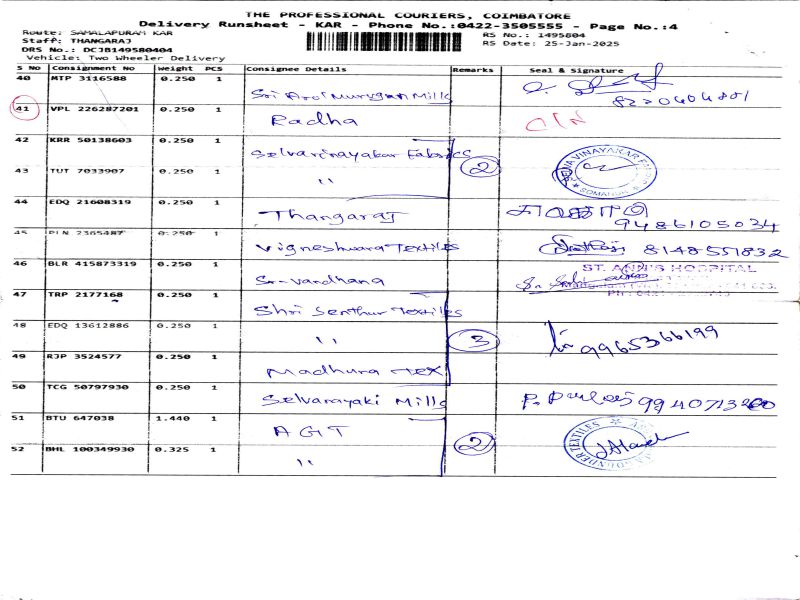 THE PROFESSIONAL COURIERS, COIMBATORE
Delivery Runsheet - KAR - Phone No.:0422-3505555 - Page No.:4
Route: SAMALAPURAM KAR
Staff: THANGARAJ
DRS No.: DCJB149580404
Vehicle: Two Wheeler Delivery
RS No.: 1495804
RS Date: 25-Jan-2025
S No Consignment No Weight PCS Consignee Details Remarks Seal & Signature
40 MTP 3116588 0.250 1 Sri Arul Murugan Mills
41 VPL 226287201 0.250 1 Radha
42 KRR 50138603 0.250 1 Selvavinayakar Fabrics 2
43 TUT 7033907 0.250 1 "
44 EDQ 21608319 0.250 1 Thangaraj 9486105034
45 PLN 2365487 0.250 1 Vigneshwara Textiles 8148551832
46 BLR 415873319 0.250 1 Sr-Vandhana ST. ANN'S HOSPITAL
47 TRP 2177168 0.250 1 Shri Senthur Textiles
48 EDQ 13612886 0.250 1 " 3 9965366199
49 RJP 3524577 0.250 1 Madhura Tex
50 TCG 50797930 0.250 1 Selvanayaki Mills
51 BTU 647038 1.440 1 AGT 2
52 BHL 100349930 0.325 1 "